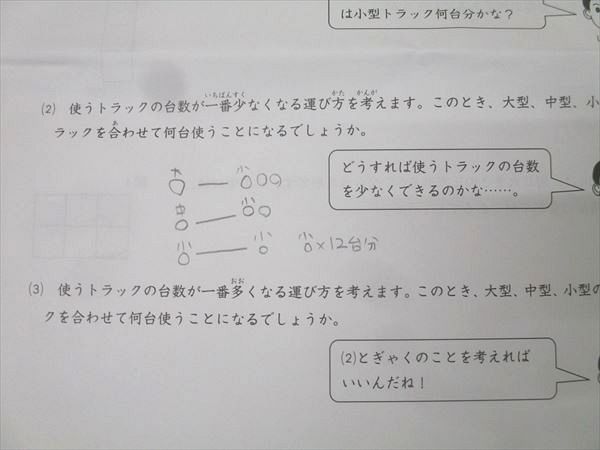 は小型トラック何台分かな？
(2) 使うトラックの台数が一番少なくなる運び方を考えます。このとき、大型、中型、小
いちばんすく かた かんが
ラックを合わせて何台使うことになるでしょうか。
あ
どうすれば使うトラックの台数
を少なくできるのかな……。
大 小
中 小
小 小 小×12台分
(3) 使うトラックの台数が一番多くなる運び方を考えます。このとき、大型、中型、小型の
おお
クを合わせて何台使うことになるでしょうか。
(2)とぎゃくのことを考えれば
いいんだね！